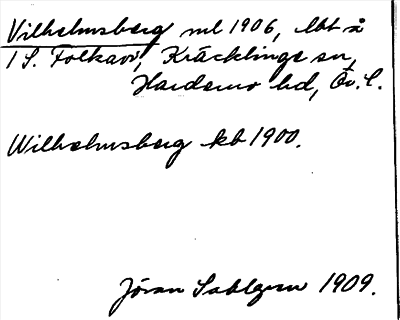 Vilhelmsberg ml 1906, lht å
1 S. Folkavi, Kräcklinge sn,
Hardemo hd, Ör. l.
Wilhelmsberg kb 1900.
Jöran Sahlgren 1909.